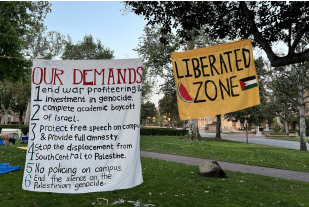 OUR DEMANDS
1 end war profiteering &
investment in genocide.
2 complete academic boycott
of Israel.
3 protect free speech on campus
& provide full amnesty.
4 Stop the displacement from
South Central to Palestine.
5 No policing on campus.
6 End the silence on the
Palestinian genocide.
LIBERATED
ZONE